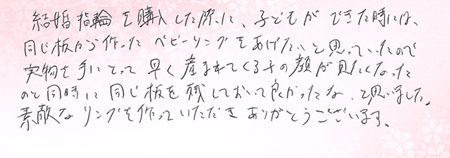 結婚指輪を購入した際に、子どもができた時には、
同じ板から作ったベビーリングをあげたいと思っていたので
実物を手にとって早く産まれてくる子の顔が見たくなった
のと同時に同じ板を残しておいて良かったな、と思いました。
素敵なリングを作っていただきありがとうございます。